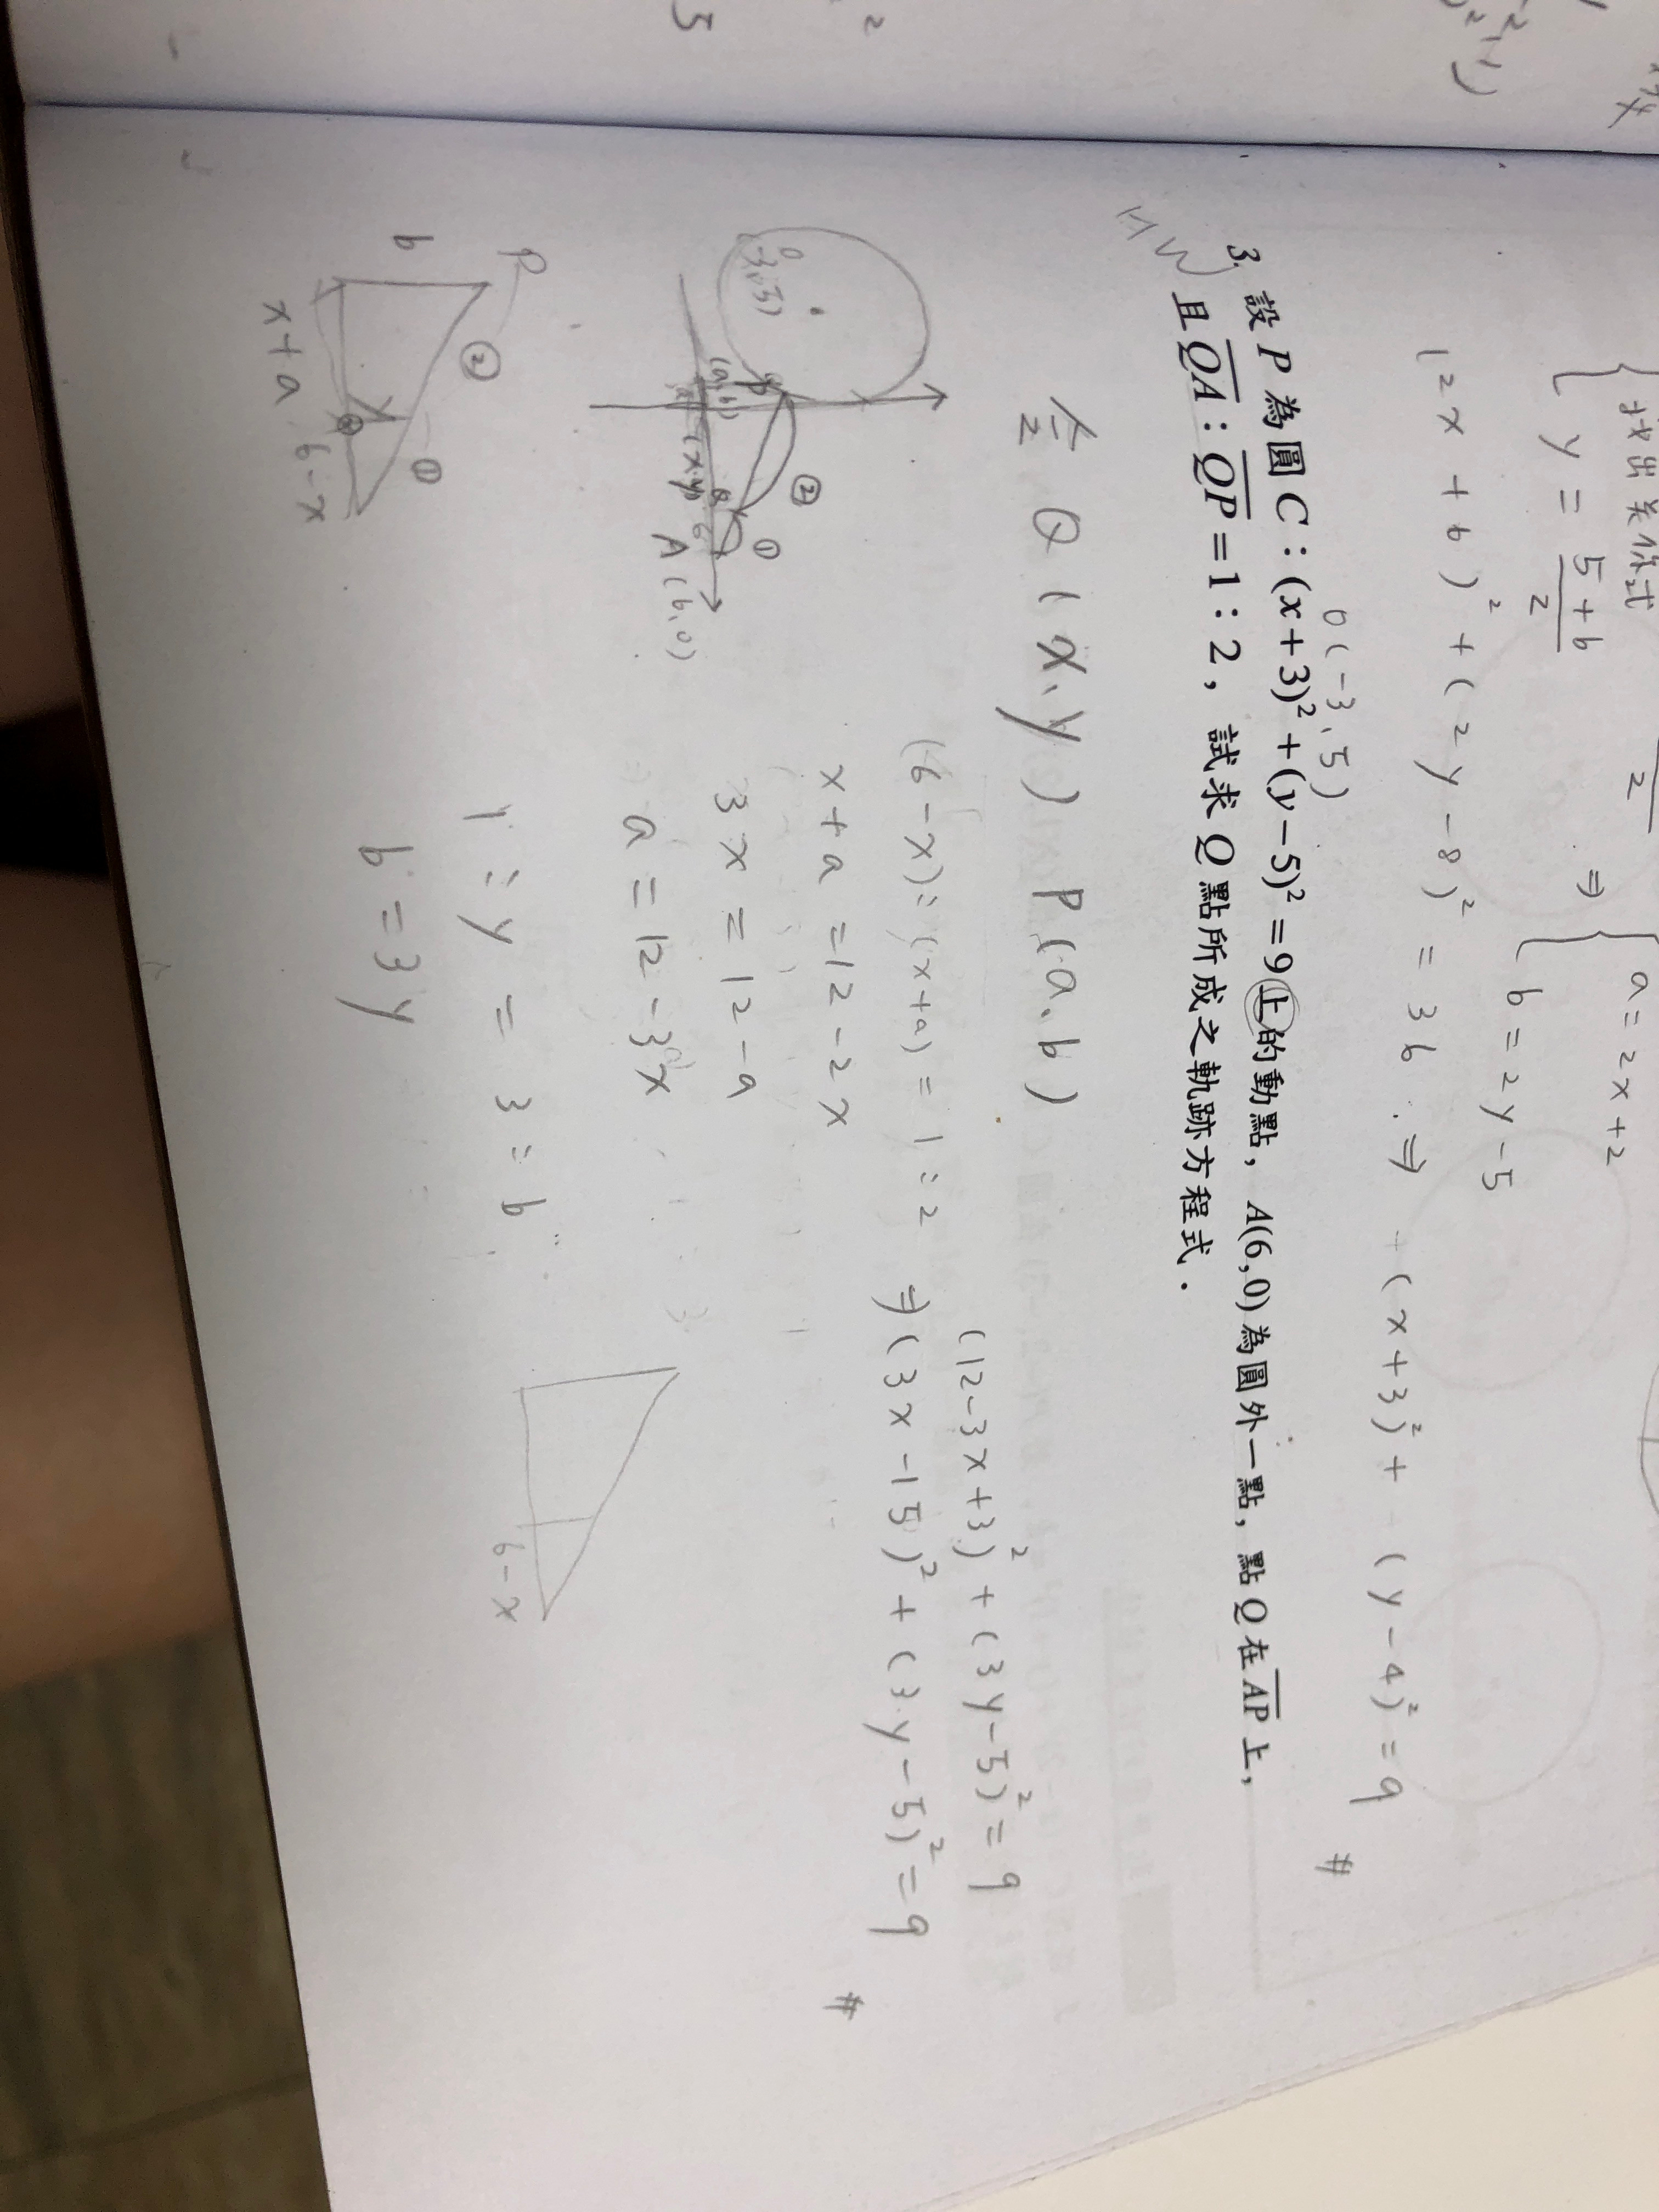 找出关係式
y = 5+b/2 ⇒ { a = 2x+2
b = 2y-5
(2x+6)² + (2y-8)² = 36 ⇒ (x+3)² + (y-4)² = 9 #
O(-3, 5)
3. 設 P 為圓 C：(x+3)²+(y-5)²=9 上的動點，A(6,0) 為圓外一點，點 Q 在 AP 上，
HW 且 QA：QP=1：2，試求 Q 點所成之軌跡方程式．
令 Q(x, y) P(a, b)
(6-x):(x+a) = 1:2
x+a = 12-2x
3x = 12-a
a = 12-3x
1:y = 3:b
b = 3y
(12-3x+3)² + (3y-5)² = 9
⇒ (3x-15)² + (3y-5)² = 9 #
O
(-3, 5)
(a, b)
(x, y)
Q
②
①
6
A(6,0)
P
②
①
b
x+a
6-x
6-x